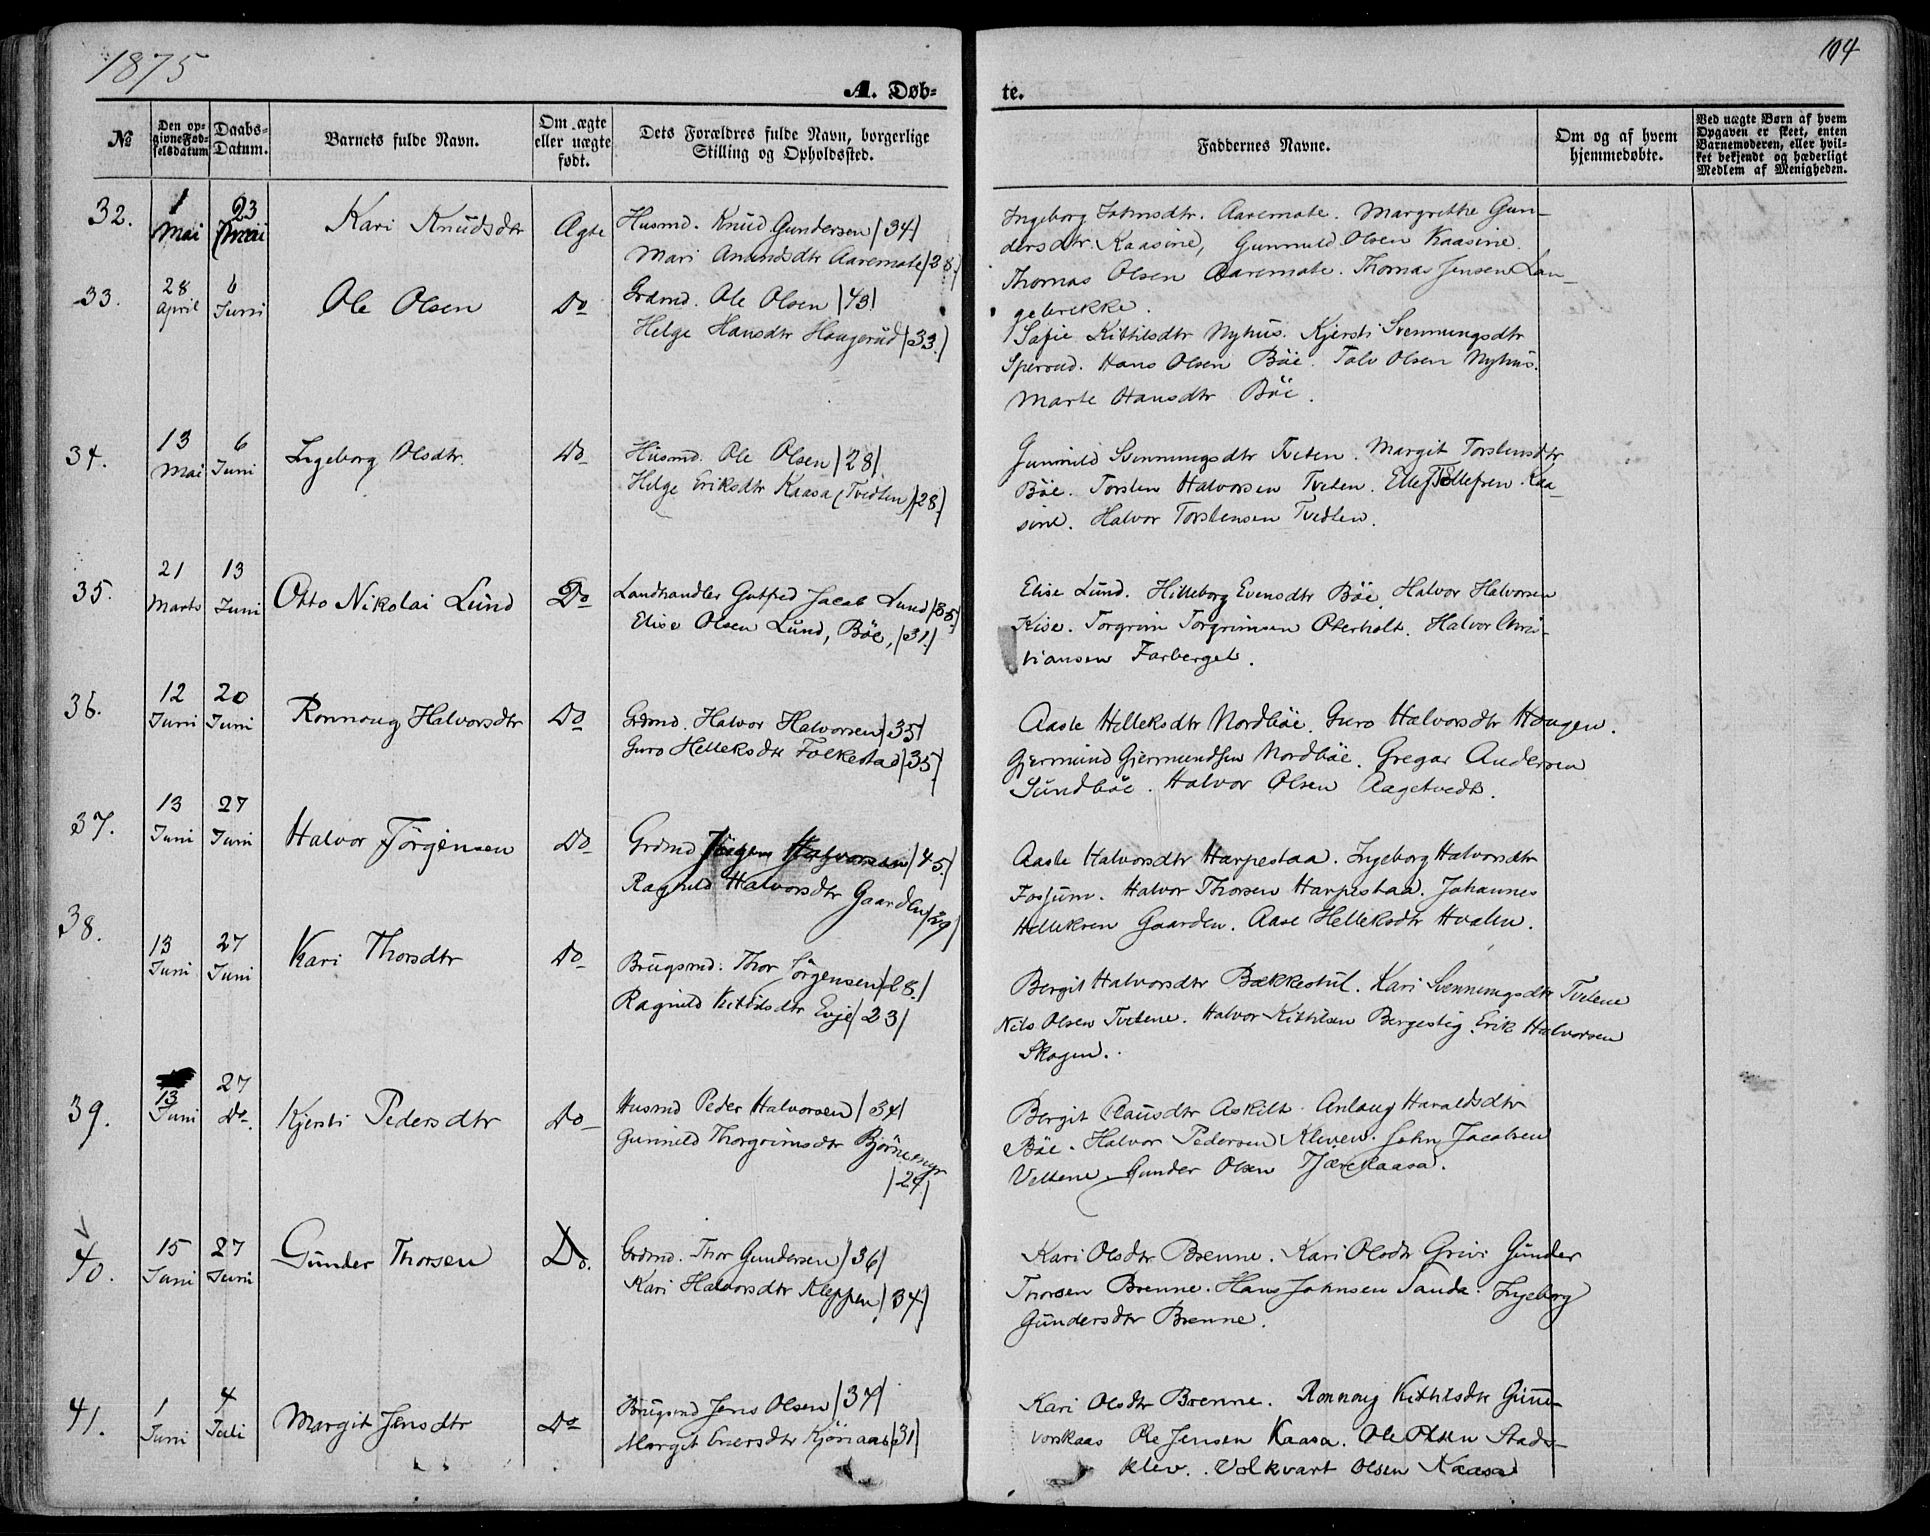 1875
104
A. Døb-
te.
No
Den op-
givne Fød-
felsdatum
Daabs-
Datum.
Barnets fulde Navn.
Om ægte
eller uægte
født.
Dets Forældres fulde Navn, borgerlige
Stilling og Opholdssted.
Faddernes Navne.
Om og af hvem
hjemmedøbte.
Ved uægte Børn af hvem
Opgaven er skeet, enten
Barnemoderen, eller hvil-
ket bekjendt og hæderligt
Medlem af Menigheden.
32.
1
Mai
23
Mai
Kari Knudsdtr
Ægte
Husmd. Knud Gundersen /34/
Mari Amundsdtr Aaremote /28./
Ingeborg Johnsdtr. Aaremote. Margrethe Gun-
dersdtr. Kaasine, Gunnuld Olsen Kaasine.
Thomas Olsen Aaremote. Thomas Jensen Lan-
gebrekke.
33.
28
April
6
Juni
Ole Olsen
Do
Grdmd. Ole Olsen /43/
Helge Hansdtr Haugerud /33./
Sofie Kittilsdtr Nyhus. Kjersti Svennungsdtr
Sperrud. Hans Olsen Böe. Talv Olsen Nyhus.
Marte Hansdtr Böe.
34.
13
Mai
6
Juni
Ingeborg Olsdtr.
Do
Husmd. Ole Olsen /28/
Helge Eriksdtr Kaasa (Tvedten) /28./
Gunnild Svennungsdtr Tveten. Margit Torstensdtr
Böe. Torsten Halvorsen Tveten. Ellef Ellefsen Kaa-
sine. Halvor Torstensen Tvedten.
35.
21
Marts
13
Juni
Otto Nikolai Lund
Do
Landhandler Gutfred Jacob Lund /35/
Elise Olsen Lund, Böe, /31./
Elise Lund. Hilleborg Evensdtr Böe. Halvor Halvorsen
Kise. Torgrim Torgrimsen Oterholt. Halvor Chris-
tiansen Farberget.
36.
12
Juni
20
Juni
Ronnoug Halvorsdtr
Do
Grdmd. Halvor Halvorsen /35/
Guro Helleksdtr Folkestad /35/
Aaste Helleksdtr Nordböe. Guro Halvorsdtr Haugen.
Gjermund Gjermundsen Nordböe. Gregar Andersen
Sundböe. Halvor Olsen Aagetvedt.
37.
13
Juni
27
Juni
Halvor Jörgensen
Do
Grdmd Jörgen Halvorsen /45./
Ragnild Halvorsdtr Gaarden /39/
Aaste Halvorsdtr Harpestaa. Ingeborg Halvorsdtr
Fossum. Halvor Thorsen Harpestaa. Johannes
Helleksen Gaarden. Aase Helleksdtr Hvalen.
38.
13
Juni
27
Juni
Kari Thorsdtr
Do
Brugsmd. Thor Jörgensen /28./
Ragnild Kittilsdtr Evje /23/
Bergit Halvorsdtr Bækkestul. Kari Svennungsdtr Tvetene
Nils Olsen Tvetene. Halvor Kittilsen Bergestig. Erik Halvorsen
Skogen.
39.
13
Juni
27
Do.
Kjersti Pedersdtr
Do
Husmd Peder Halvorsen /34/
Gunnild Thorgrimsdtr Björnemyr
/24/
Bergit Clausdtr Askilt. Anlaug Haraldsdtr
Böe. Halvor Pedersen Kleven. John Jacobsen
Veltene. Gunder Olsen Tjærekaasa.
40.
15
Juni
27
Juni
Gunder Thorsen
Do.
Grdmd. Thor Gundersen /36/
Kari Halvorsdtr Kleppen /34/
Kari Olsdtr Brenne. Kari Olsdtr Grivi Gunder
Thorsen Brenne. Hans Johnsen Sanda. Ingeborg
Gundersdtr Brenne.
41.
1
Juni
4
Juli
Margit Jensdtr
Do
Brugsmd Jens Olsen /37/
Margit Eversdtr Kjönaas /31/
Kari Olsdtr Brenne. Ronnoug Kittilsdtr Gunne-
vorskaas Ole Jensen Kaasa. Ole Olsen Stads-
klev. Volkvart Olsen Kaasa